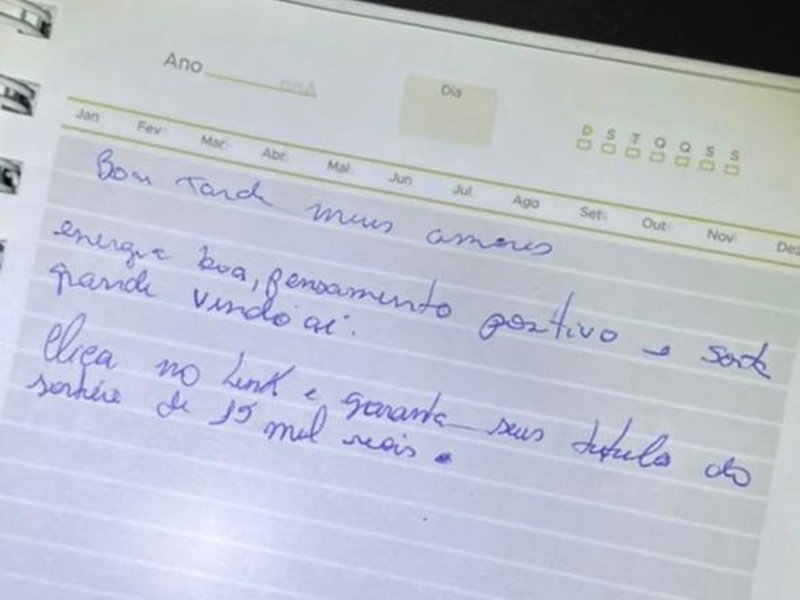 Ano
Dia
D S T Q Q S S
Jan Fev Mar Abr Mai Jun Jul Ago Set Out Nov Dez
Boa Tarde meus amores
energia boa, pensamento positivo e sorte
grande vindo aí.
Clica no Link e garanta seus titulo do
sorteio de 15 mil reais.